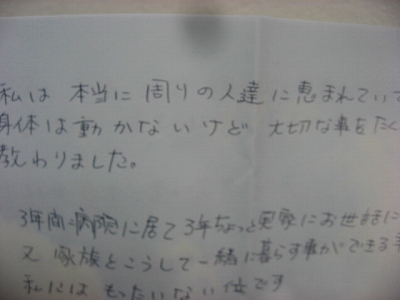 私は 本当に 周りの人達に恵まれていて
身体は動かないけど 大切な事をたく
教わりました。
3年間病院に居て3年ちょっと実家にお世話に
又 家族とこうして一緒に暮らす事ができる
私には もったいない位です